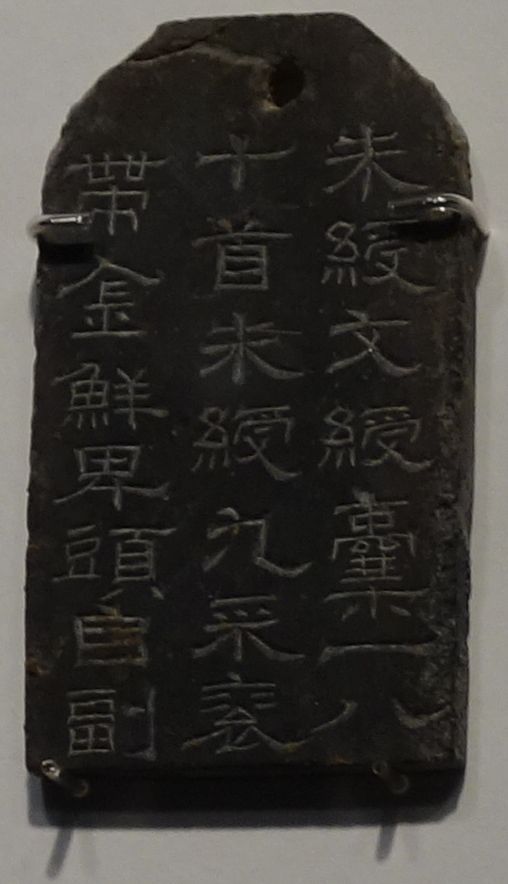 朱綬文綬囊一八
十首朱綬九采袞
帶金鮮卑頭自副